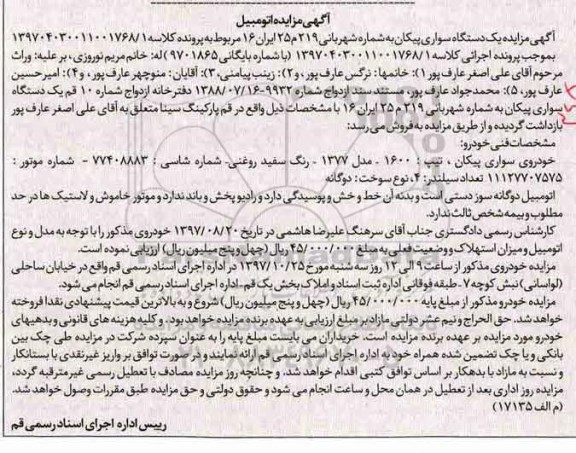 آگهی مزایده اتومبیل
آگهی مزایده یک دستگاه سواری پیکان به شماره شهربانی ۲۱۹ م ۲۵ ایران ۱۶ مربوط به پرونده کلاسه ۱۳۹۷۰۴۰۳۰۰۱۱۰۰۱۷۶۸/۱
بموجب پرونده اجرائی کلاسه ۱۳۹۷۰۴۰۳۰۰۱۱۰۰۱۷۶۸/۱ (با شماره بایگانی ۹۷۰۱۸۶۵) له: خانم مریم نوروزی، بر علیه: وراث
مرحوم آقای علی اصغر عارف پور ۱): خانمها: نرگس عارف پور، و ۲): زینب پیامنی، ۳): آقایان: منوچهر عارف پور، و ۴): امیرحسین
عارف پور، ۵): محمدجواد عارف پور، مستند سند ازدواج شماره ۹۹۳۲-۱۳۸۸/۰۷/۱۶ دفترخانه ازدواج شماره ۱۰ قم یک دستگاه
سواری پیکان به شماره شهربانی ۲۱۹ م ۲۵ ایران ۱۶ با مشخصات ذیل واقع در قم پارکینگ سینا متعلق به آقای علی اصغر عارف پور
بازداشت گردیده و از طریق مزایده به فروش می رسد:
مشخصات فنی خودرو:
خودروی سواری پیکان ، تیپ : ۱۶۰۰ - مدل ۱۳۷۷ - رنگ سفید روغنی- شماره شاسی : ۷۷۴۰۸۸۸۳ - شماره موتور :
۱۱۱۲۷۷۰۷۵۷۵ تعداد سیلندر: ۴، نوع سوخت: دوگانه
اتومبیل دوگانه سوز دستی است و بدنه آن خط و خش و پوسیدگی دارد و رادیو پخش و باند ندارد و موتور خاموش و لاستیک ها در حد
مطلوب و بیمه شخص ثالث ندارد.
کارشناس رسمی دادگستری جناب آقای سرهنگ علیرضا هاشمی در تاریخ ۱۳۹۷/۰۸/۲۰ خودروی مذکور را با توجه به مدل و نوع
اتومبیل و میزان استهلاک و وضعیت فعلی به مبلغ ۴۵/۰۰۰/۰۰۰ ریال (چهل و پنج میلیون ریال) ارزیابی نموده است.
مزایده خودروی مذکور از ساعت ۹ الی ۱۲ روز سه شنبه مورخ ۱۳۹۷/۱۰/۲۵ در اداره اجرای اسناد رسمی قم واقع در خیابان ساحلی
(لواسانی) نبش کوچه ۷- طبقه فوقانی اداره ثبت اسناد و املاک بخش یک قم- اداره اجرای اسناد رسمی قم انجام می شود.
مزایده خودرو مذکور از مبلغ پایه ۴۵/۰۰۰/۰۰۰ ریال (چهل و پنج میلیون ریال) شروع و به بالاترین قیمت پیشنهادی نقدا فروخته
خواهد شد. حق الحراج و نیم عشر دولتی مازاد بر مبلغ ارزیابی به عهده برنده مزایده خواهد بود. و کلیه هزینه های قانونی و بدهیهای
خودرو مورد مزایده بر عهده برنده مزایده است. خریداران می بایست مبلغ پایه را به عنوان سپرده شرکت در مزایده طی چک بین
بانکی و یا چک تضمین شده همراه خود به اداره اجرای اسناد رسمی قم ارائه نمایند و در صورت توافق بر واریز غیرنقدی با بستانکار
و نسبت به مازاد با بدهکار بر اساس توافق کتبی اقدام خواهد شد. و چنانچه روز مزایده مصادف با تعطیل رسمی غیرمترقبه گردد،
مزایده روز اداری بعد از تعطیل در همان محل و ساعت انجام می شود و حقوق دولتی و حق مزایده طبق مقررات وصول خواهد شد.
(م الف ۱۷۱۳۵)
رییس اداره اجرای اسناد رسمی قم